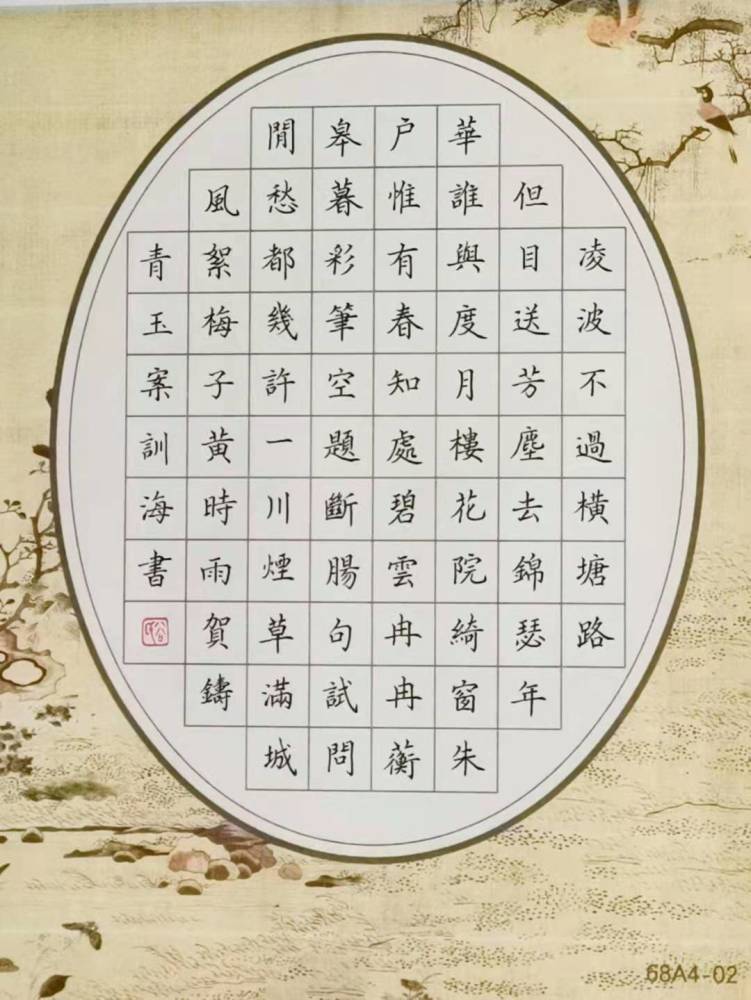 凌波不過橫塘路
但目送芳塵去錦瑟年
華誰與度月樓花院綺窗朱
户惟有春知處碧雲冉冉蘅
皋暮彩筆空題斷腸句試問
閒愁都幾許一川煙草滿城
風絮梅子黃時雨賀鑄
青玉案訓海書
68A4-02